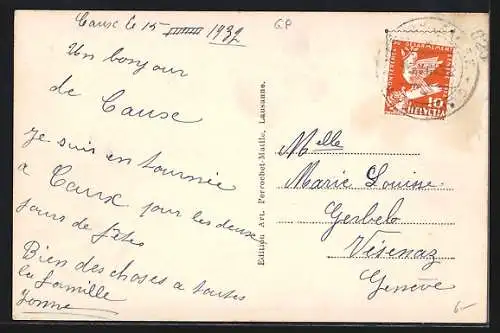 Caux le 15 1932
GP
Un bonjour
de Cause
je suis en tournée
a Caux pour les deux
jours de fêtes
Bien des choses a toutes
la famille
Yonne
Edition Art. Perrochet-Matile, Lausanne.
DÉSARMEMENT
10
HELVETIA
Melle
Marie Louise
Gerbel
Vésenaz
Genève
6-